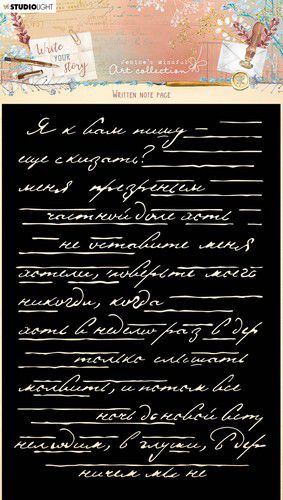 BY STUDIOLIGHT
Write
YOUR
story
Jenine's Mindful
Art collection
WRITTEN NOTE PAGE
Я к вам пишу –
еще сказать?
меня презреньем
частной доле хоть
не оставите меня
хотели, поверьте моей
никогда, когда
хоть в неделю раз в дер
только слышать
молвить, и потом все
ночь до новой вст
нелюдим, в глуши, в дер
ничем мы не